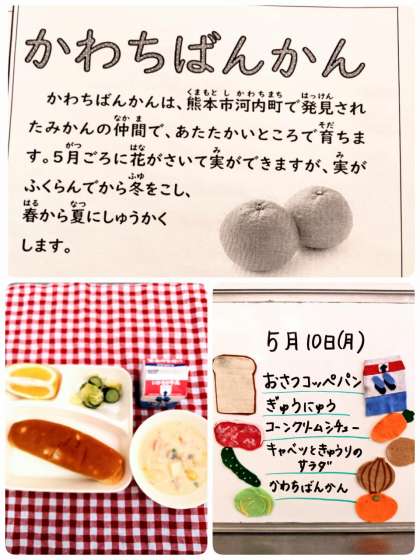 かわちばんかん
かわちばんかんは、熊本市河内町で発見され
たみかんの仲間で、あたたかいところで育ちま
す。5月ごろに花がさいて実ができますが、実が
ふくらんでから冬をこし、
春から夏にしゅうかく
します。
5月10日(月)
おさつコッペパン
ぎゅうにゅう
コーンクリームシチュー
キャベツときゅうりの
サラダ
かわちばんかん